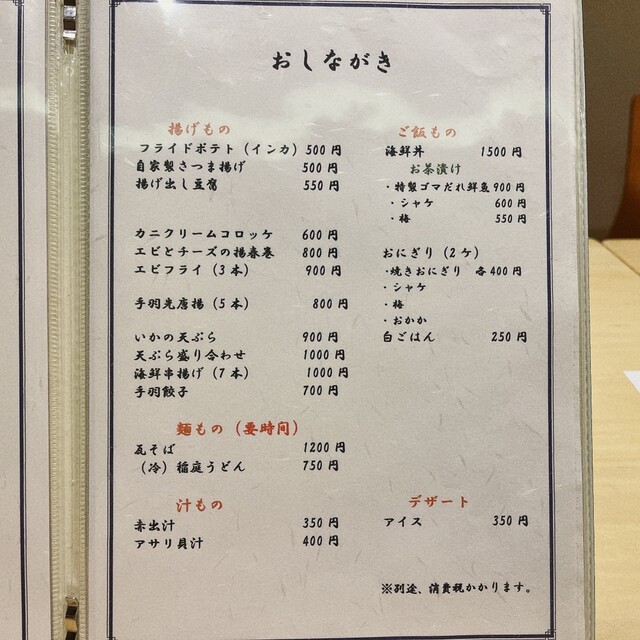 おしながき
揚げもの
フライドポテト（インカ）500円
自家製さつま揚げ 500円
揚げ出し豆腐 550円
カニクリームコロッケ 600円
エビとチーズの揚春巻 800円
エビフライ（3本） 900円
手羽先唐揚（5本） 800円
いかの天ぷら 900円
天ぷら盛り合わせ 1000円
海鮮串揚げ（7本） 1000円
手羽餃子 700円
麺もの（要時間）
瓦そば 1200円
（冷）稲庭うどん 750円
汁もの
赤出汁 350円
アサリ貝汁 400円
ご飯もの
海鮮丼 1500円
お茶漬け
・特製ゴマだれ鮮魚 900円
・シャケ 600円
・梅 550円
おにぎり（2ケ）
・焼きおにぎり 各400円
・シャケ
・梅
・おかか
白ごはん 250円
デザート
アイス 350円
※別途、消費税かかります。